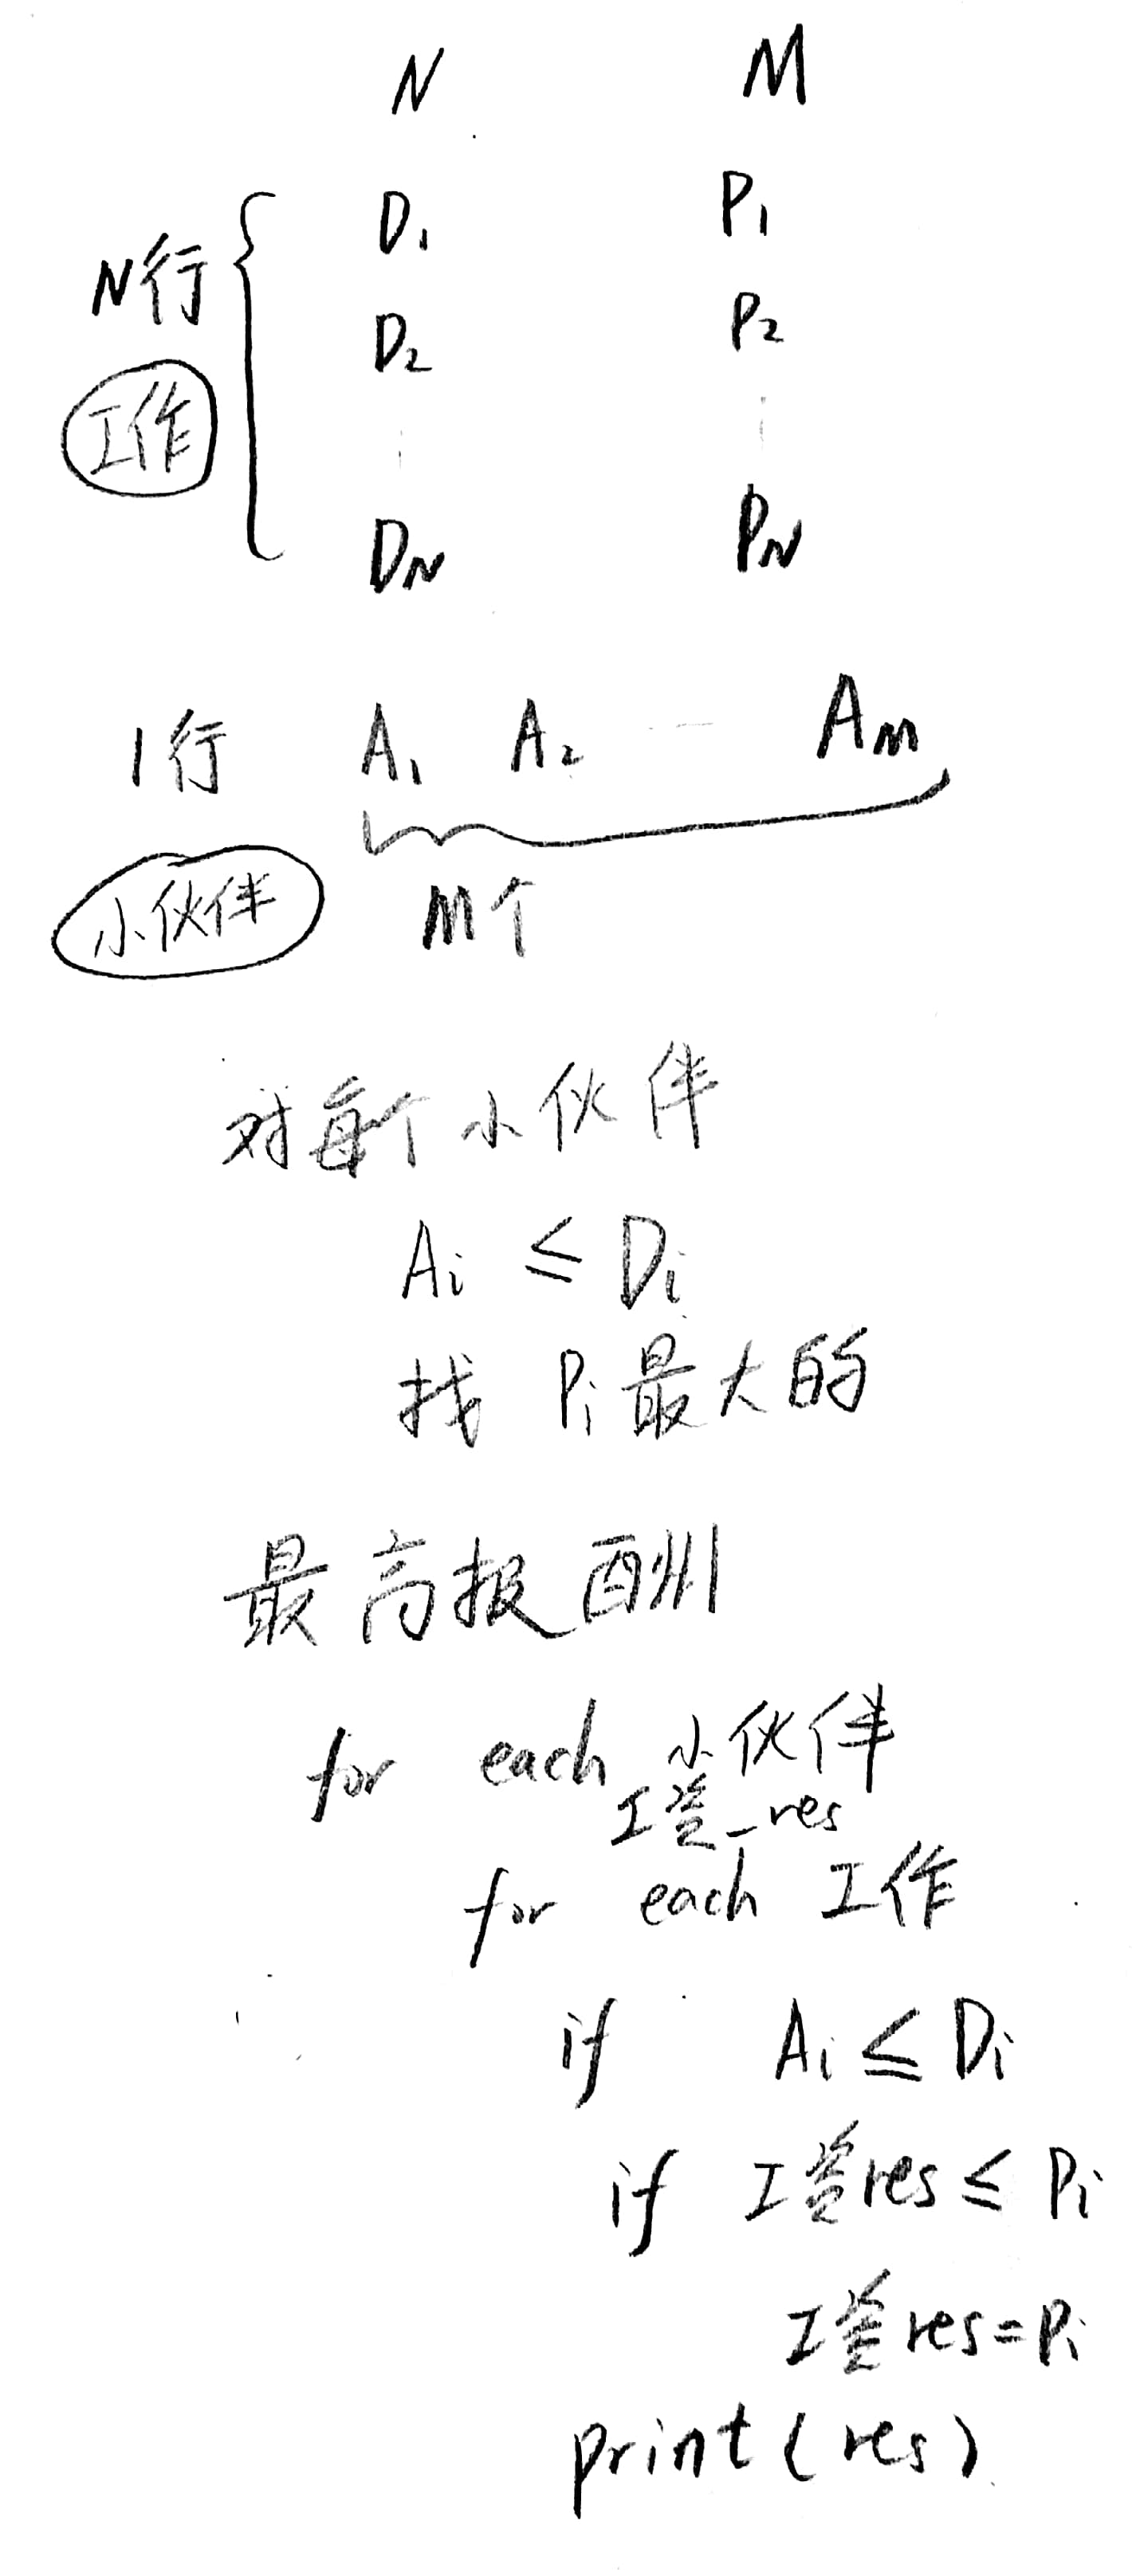 N M
D₁ P₁
N行
D₂ P₂
工作
D_N P_N
1行 A₁ A₂ A_M
小伙伴 M个
对每个小伙伴
Ai ≤ Di
找 Pi最大的
最高报酬
for each 小伙伴
工资_res
for each 工作
if Ai ≤ Di
if 工资res ≤ Pi
工资res=Pi
print(res)